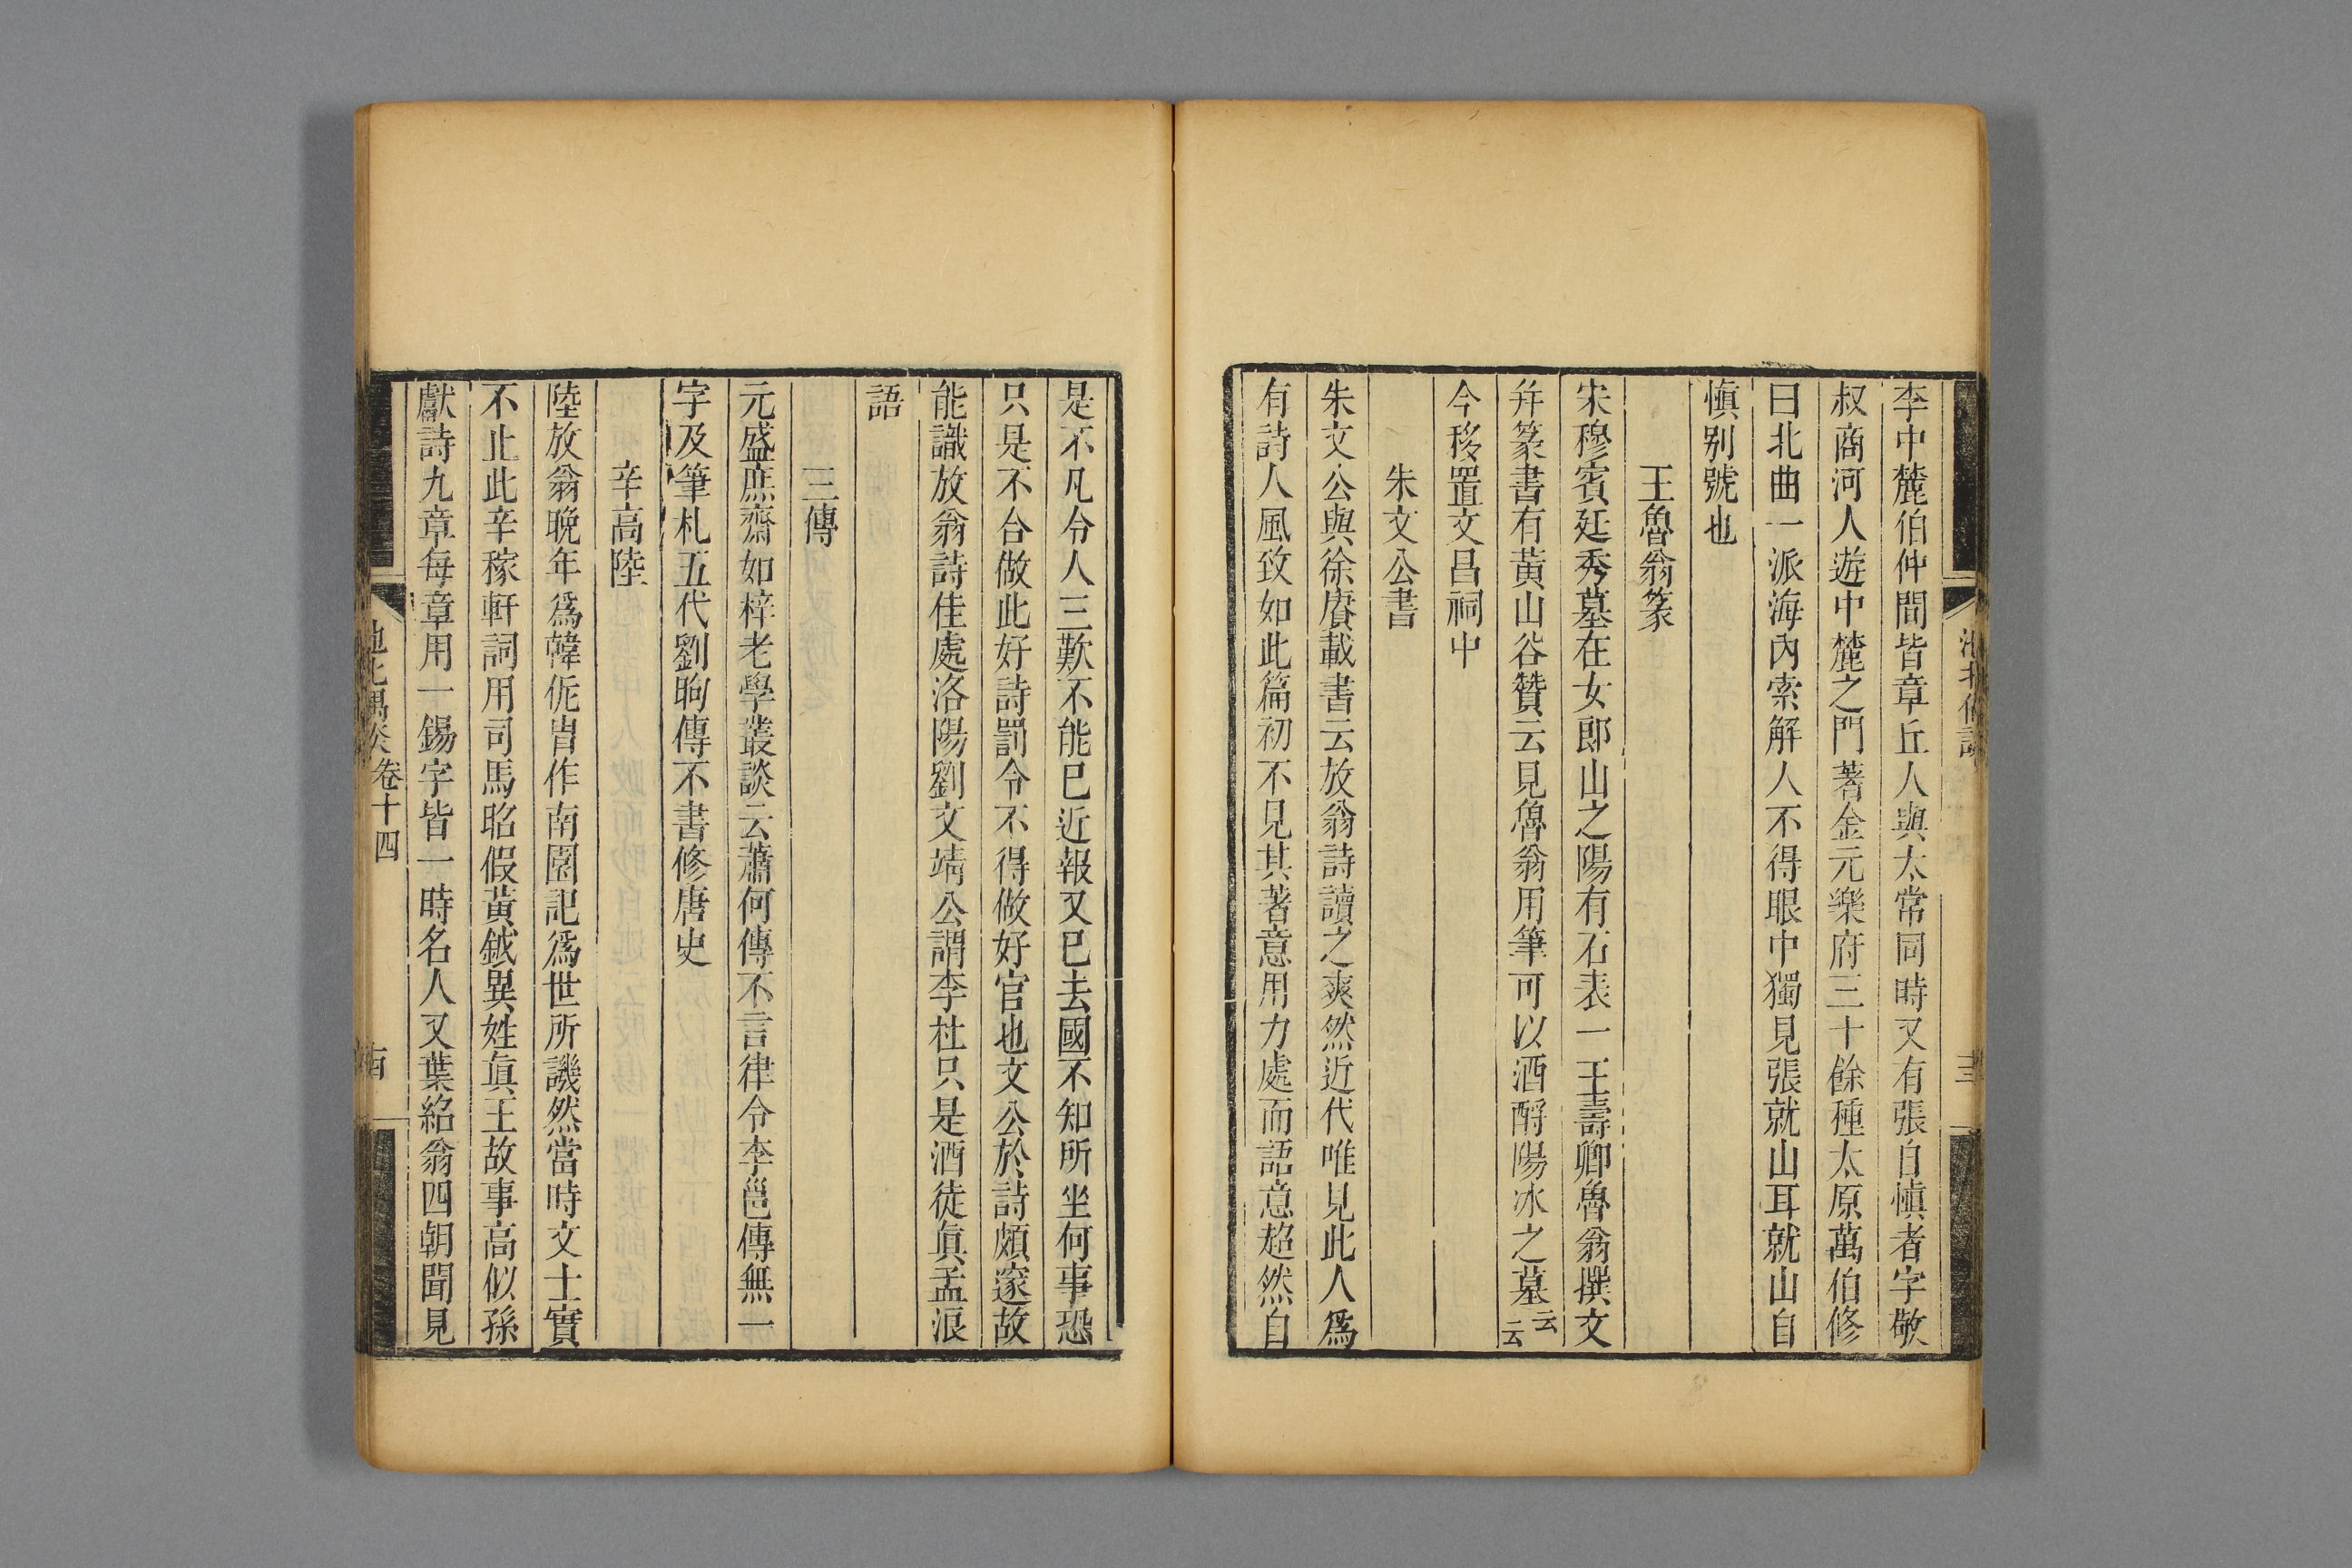 李中麓伯仲間皆章丘人與太常同時又有張自愼者字敬
叔商河人遊中麓之門著金元樂府三十餘種太原萬伯修
曰北曲一派海內索解人不得眼中獨見張就山耳就山自
愼别號也
王魯翁篆
宋穆賓廷秀墓在女郎山之陽有石表一王壽卿魯翁撰文
幷篆書有黃山谷贊云見魯翁用筆可以酒酹陽冰之墓云云
今移置文昌祠中
朱文公書
朱文公與徐賡載書云放翁詩讀之爽然近代唯見此人爲
有詩人風致如此篇初不見其著意用力處而語意超然自
是不凡令人三歎不能已近報又已去國不知所坐何事恐
只是不合做此好詩罰令不得做好官也文公於詩頗邃故
能識放翁詩佳處洛陽劉文靖公謂李杜只是酒徒眞孟浪
語
三傳
元盛庶齋如梓老學叢談云蕭何傳不言律令李邕傳無一
字及筆札五代劉昫傳不書修唐史
辛高陸
陸放翁晚年爲韓侂胄作南園記爲世所譏然當時文士實
不止此辛稼軒詞用司馬昭假黃鉞異姓眞王故事高似孫
獻詩九章每章用一錫字皆一時名人又葉紹翁四朝聞見
池北偶談
卷十四